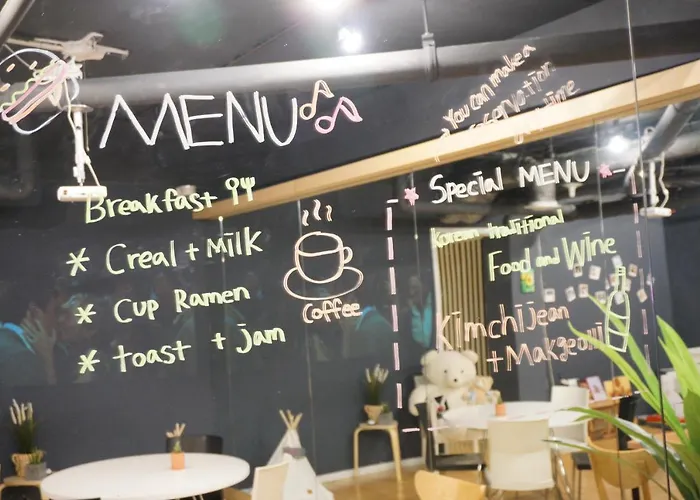 MENU
You can make a
reservation
wine
Breakfast
* Creal + Milk
* Cup Ramen
* toast + jam
Coffee
* Special MENU *
Korean traditional
Food and Wine
Kimchijean
+ Makgeolli